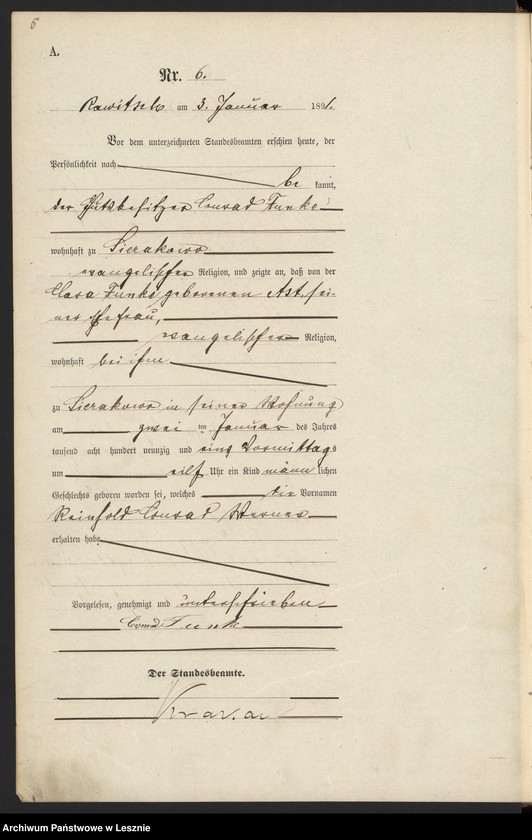 5
A.
Nr. 6.
Rawitsch am 3. Januar 1891.
Vor dem unterzeichneten Standesbeamten erschien heute, der
Persönlichkeit nach
be kannt,
der Gutsbesitzer Conrad Funke
wohnhaft zu Sierakowo
evangelischer Religion, und zeigte an, daß von der
Clara Funke geborenen Ast, sei-
ner Ehefrau,
evangelischer Religion,
wohnhaft bei ihm
zu Sierakowo in seiner Wohnung
am zwei ten Januar des Jahres
tausend acht hundert neunzig und eins Vormittags
um eilf Uhr ein Kind männlichen
Geschlechts geboren worden sei, welches die Vornamen
Reinhold Conrad Werner
erhalten habe
Vorgelesen, genehmigt und unterschrieben
Funke
Der Standesbeamte.
Archiwum Państwowe w Lesznie